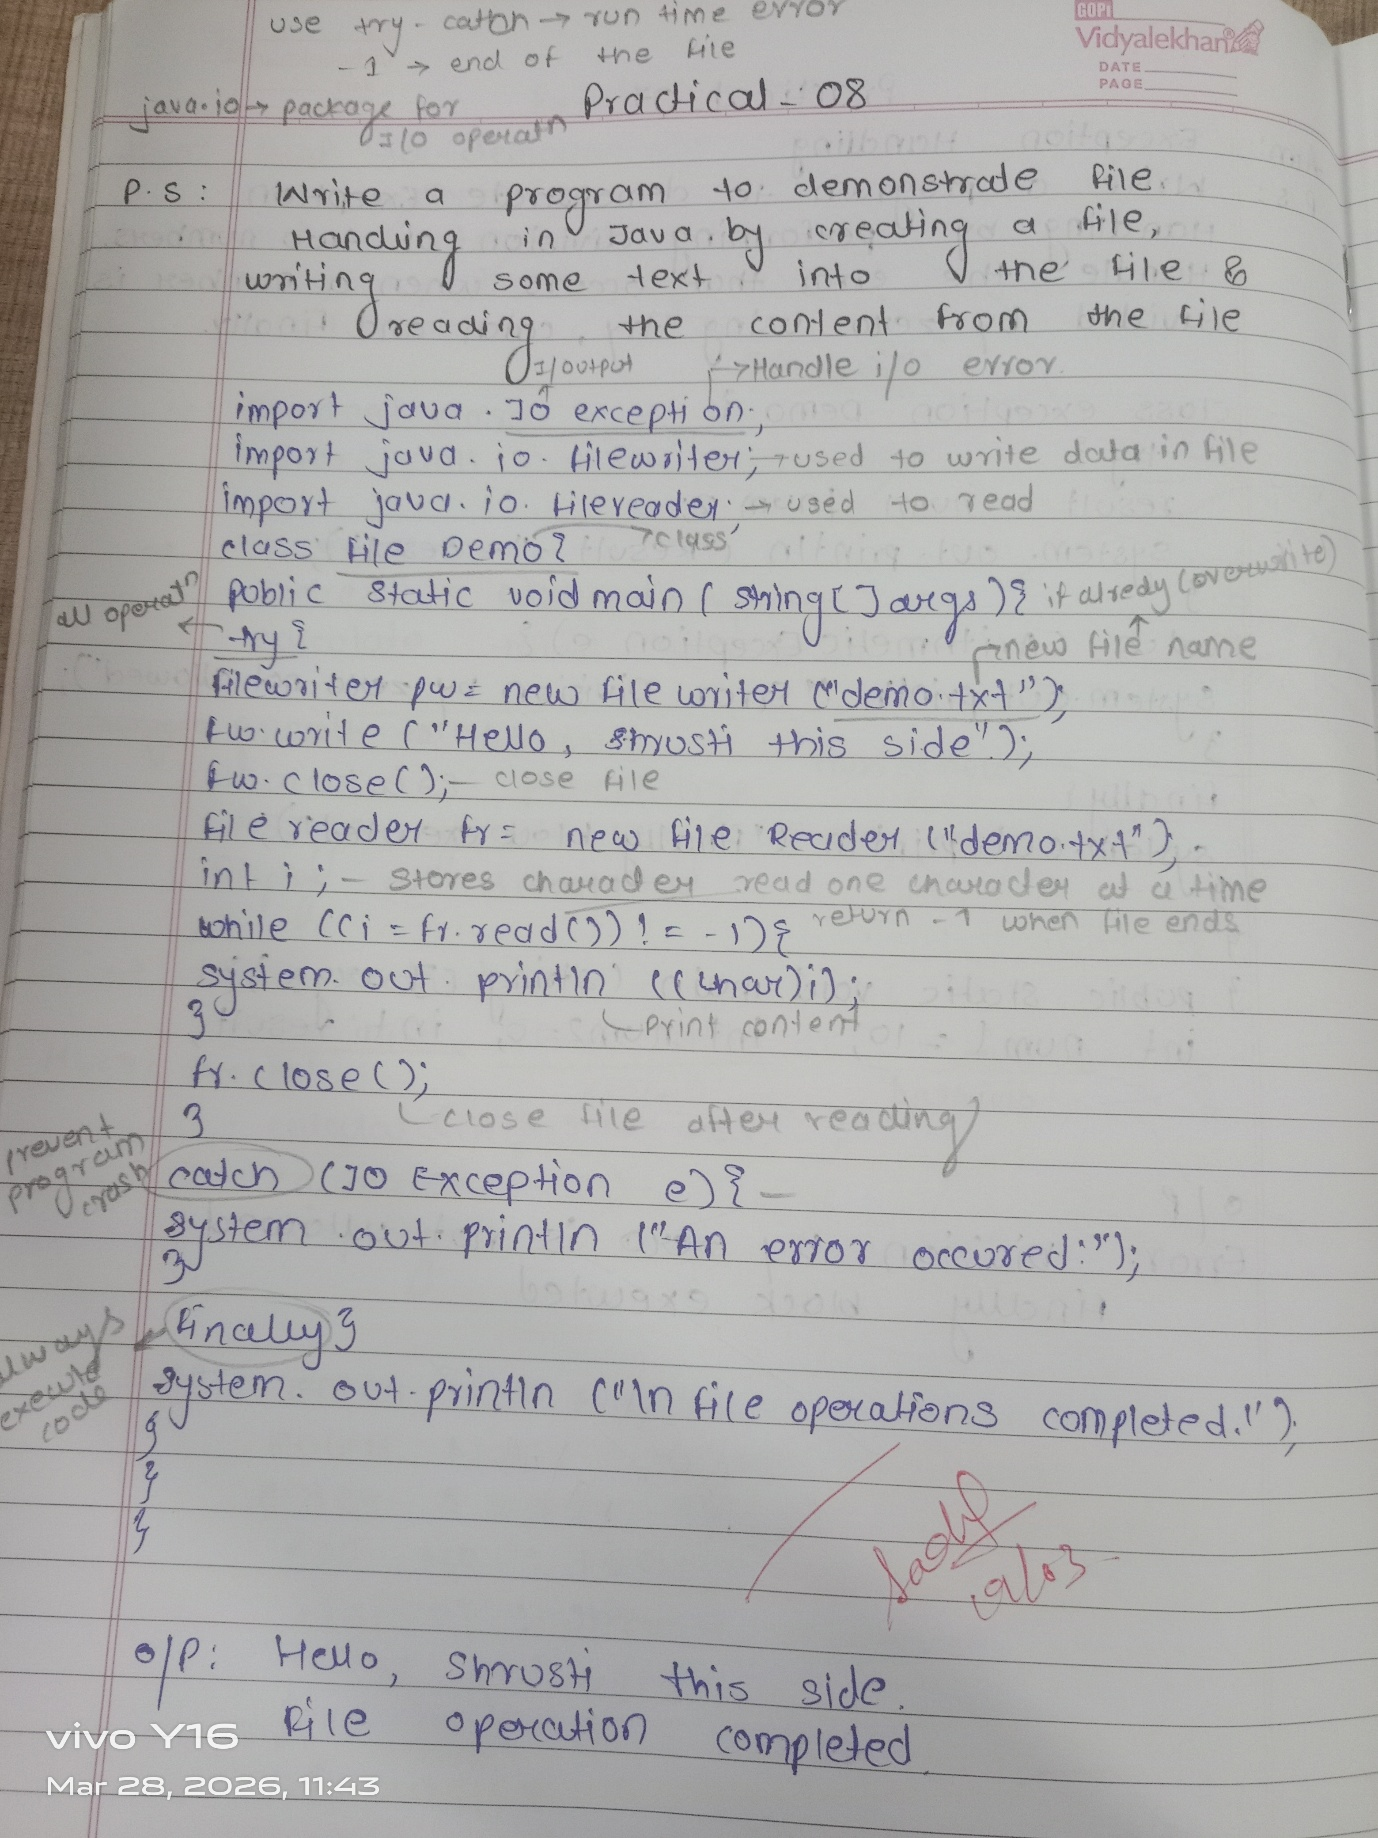 use try-catch → run time error
-1 → end of the file
GOPI
Vidyalekhan
DATE
PAGE
java.io → package for
I/O operatn
Practical - 08
P.S: Write a program to demonstrade file
Handling in Java by creating a file,
writing some text into the file &
reading the content from the file
I/output → Handle i/o error
import java . IO exception;
import java. io. filewriter; → used to write data in file
import java. io. filereader; → used to read
class File Demo{ → class
public static void main ( string [ ] args ) { if already (overwrite)
all operatn
try {
new file name
filewriter pw = new file writer ("demo.txt");
fw.write ("Hello, shrusti this side");
fw. close(); — close file
file reader fr = new file Reader ("demo.txt");
int i ; — stores character read one character at a time
while ((i = fr.read()) != -1) { return -1 when file ends
system. out. println ((char)i);
}
print content
fr. close();
}
close file after reading
prevent program crash
catch (IO Exception e) { —
system .out. println ("An error occured:");
}
finally }
always execute code
system. out. println ("\n file operations completed.!");
}
}
}
o/p: Hello, Shrusti this side.
File operation completed.
vivo Y16
Mar 28, 2026, 11:43